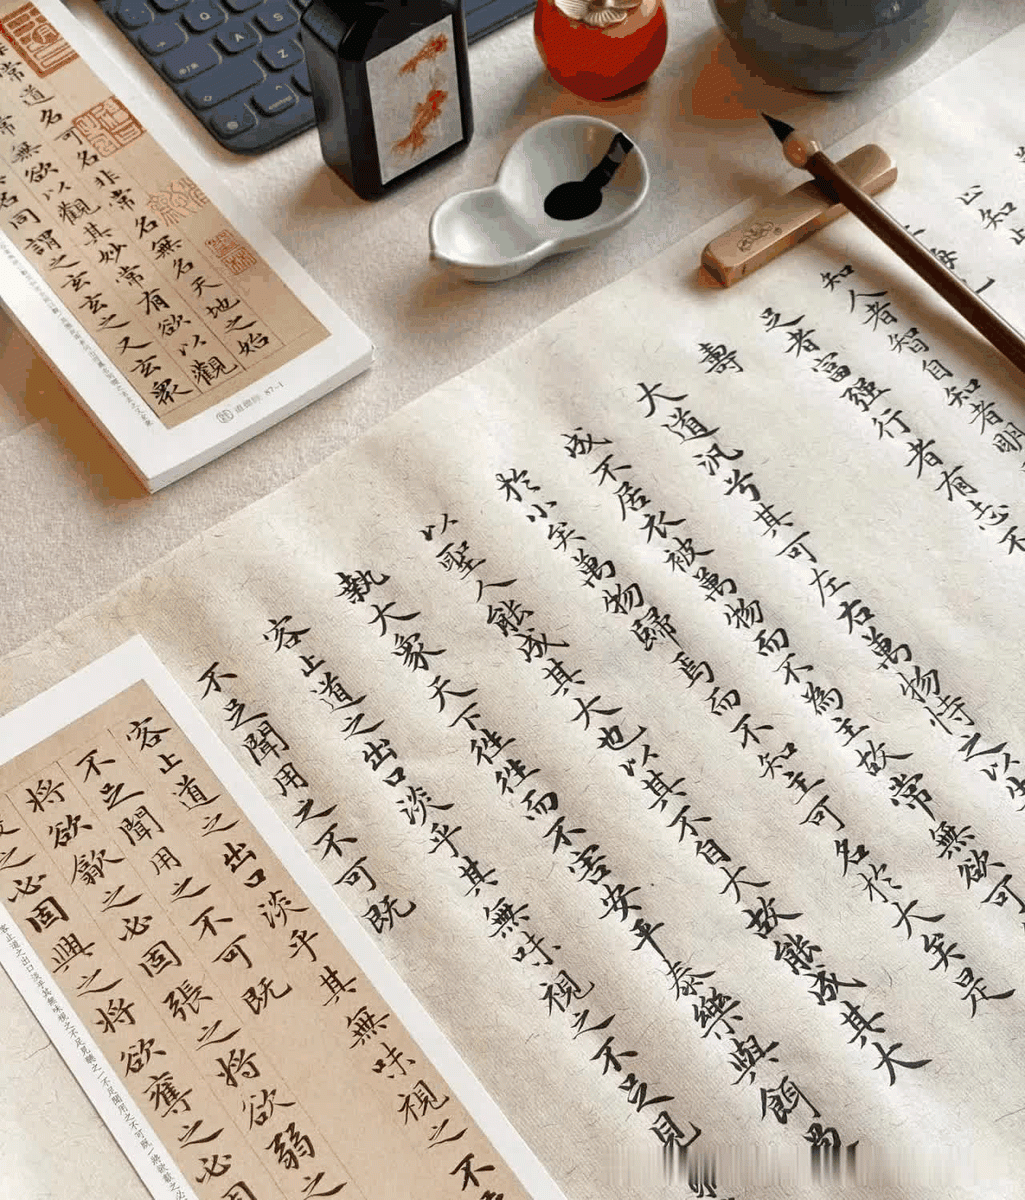 常道名可名非常名無名天地之始
常無欲以觀其妙常有欲以觀
名同謂之玄玄之又玄衆
道德經 87-1
知止
知人者智自知者明
足者富強行者有志不
壽
大道汎兮其可左右萬物恃之以生
成不居衣被萬物而不為主故常無欲可
於小矣萬物歸焉而不知主可名於大矣是
以聖人能成其大也以其不自大故能成其大
執大象天下往往而不害安平泰樂與餌過
客止道之出口淡乎其無味視之不足見
不足聞用之不可既
客止道之出口淡乎其無味視之不
不足聞用之不可既
將欲歙之必固張之將欲弱之
之必固興之將欲奪之必固
客止道之出口淡乎其無味視之不足見聽之不足聞用之不可既